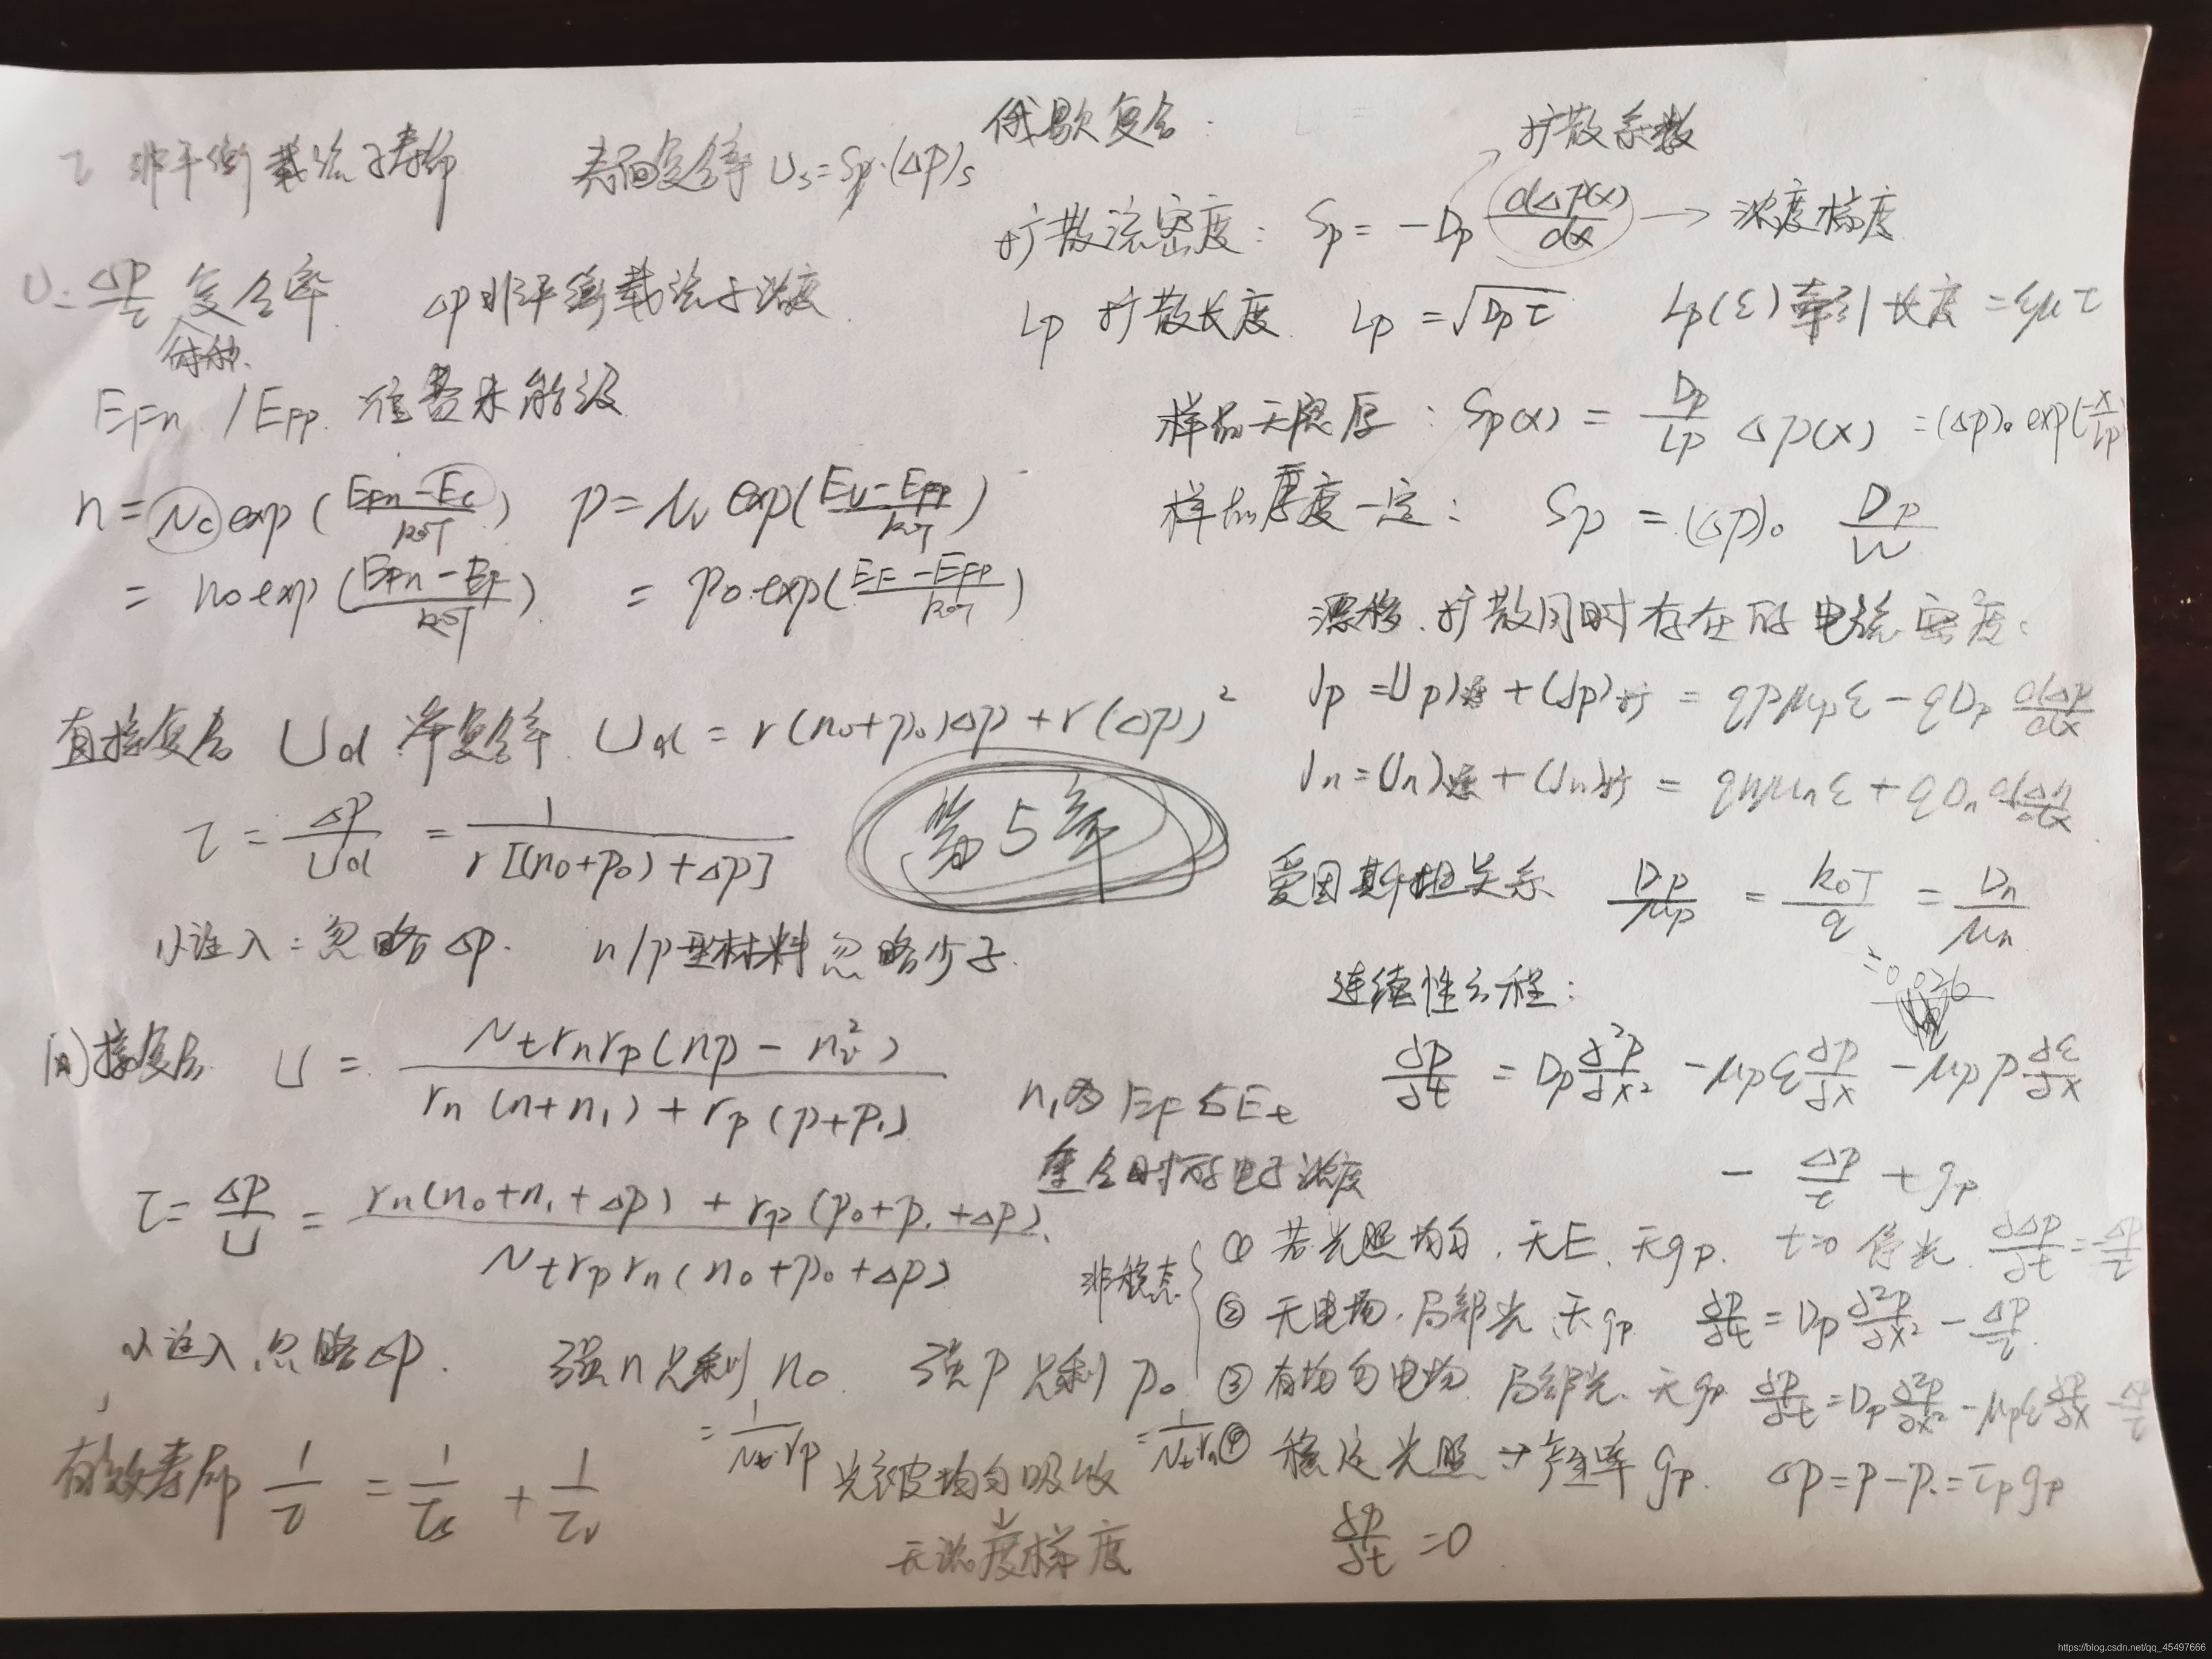 τ 非平衡载流子寿命 表面复合率 Us=Sp·(Δp)s
U=Δp/τ 复合率 Δp非平衡载流子浓度
EFn /EFp 准费米能级
n=Nc exp((EFn-Ec)/k0T) p=Nv exp((Ev-EFp)/k0T)
= n0 exp((EFn-EF)/k0T) = p0 exp((EF-EFp)/k0T)
直接复合 Ud 净复合率 Ud=r(n0+p0)Δp+r(Δp)²
τ=Δp/Ud=1/(r[(n0+p0)+Δp])
第5章
小注入:忽略Δp. n/p型材料忽略少子.
间接复合 U=Nt rn rp(np-ni²)/(rn(n+n1)+rp(p+p1))
n1为EF与Et
重合时的电子浓度
τ=Δp/U=(rn(n0+n1+Δp)+rp(p0+p1+Δp))/(Nt rp rn(n0+p0+Δp))
小注入忽略Δp. 强n只剩n0 强p只剩p0
=1/(Nt rp) =1/(Nt rn)
有效寿命 1/τ=1/τs+1/τv
光被均匀吸收
↓
无浓度梯度
俄歇复合:
扩散系数
扩散流密度: Sp=-Dp dΔp(x)/dx → 浓度梯度
Lp 扩散长度 Lp=√(Dpτ) Lp(ε)牵引长度=εμτ
样品无限厚: Sp(x)=Dp/Lp Δp(x) =(Δp)0 exp(-x/Lp)
样品厚度一定: Sp=(Δp)0 Dp/W
漂移、扩散同时存在的电流密度:
Jp=(Jp)漂+(Jp)扩=qpμpε-qDp dΔp/dx
Jn=(Jn)漂+(Jn)扩=qnμnε+qDn dΔn/dx
爱因斯坦关系 Dp/μp=k0T/q=Dn/μn
=0.026
连续性方程:
∂p/∂t=Dp ∂²p/∂x²-μpε ∂p/∂x-μp p ∂ε/∂x
-Δp/τ+gp
非稳态
① 若光照均匀,无E,无gp. t=0停光 ∂Δp/∂t=-Δp/τ
② 无电场,局部光 无gp ∂p/∂t=Dp ∂²p/∂x²-Δp/τ
③ 有均匀电场 局部光、无gp ∂p/∂t=Dp ∂²p/∂x²-μpε ∂p/∂x-Δp/τ
④ 稳定光照→产生率gp. Δp=p-p0=τp gp
∂p/∂t=0
https://blog.csdn.net/qq_45497666